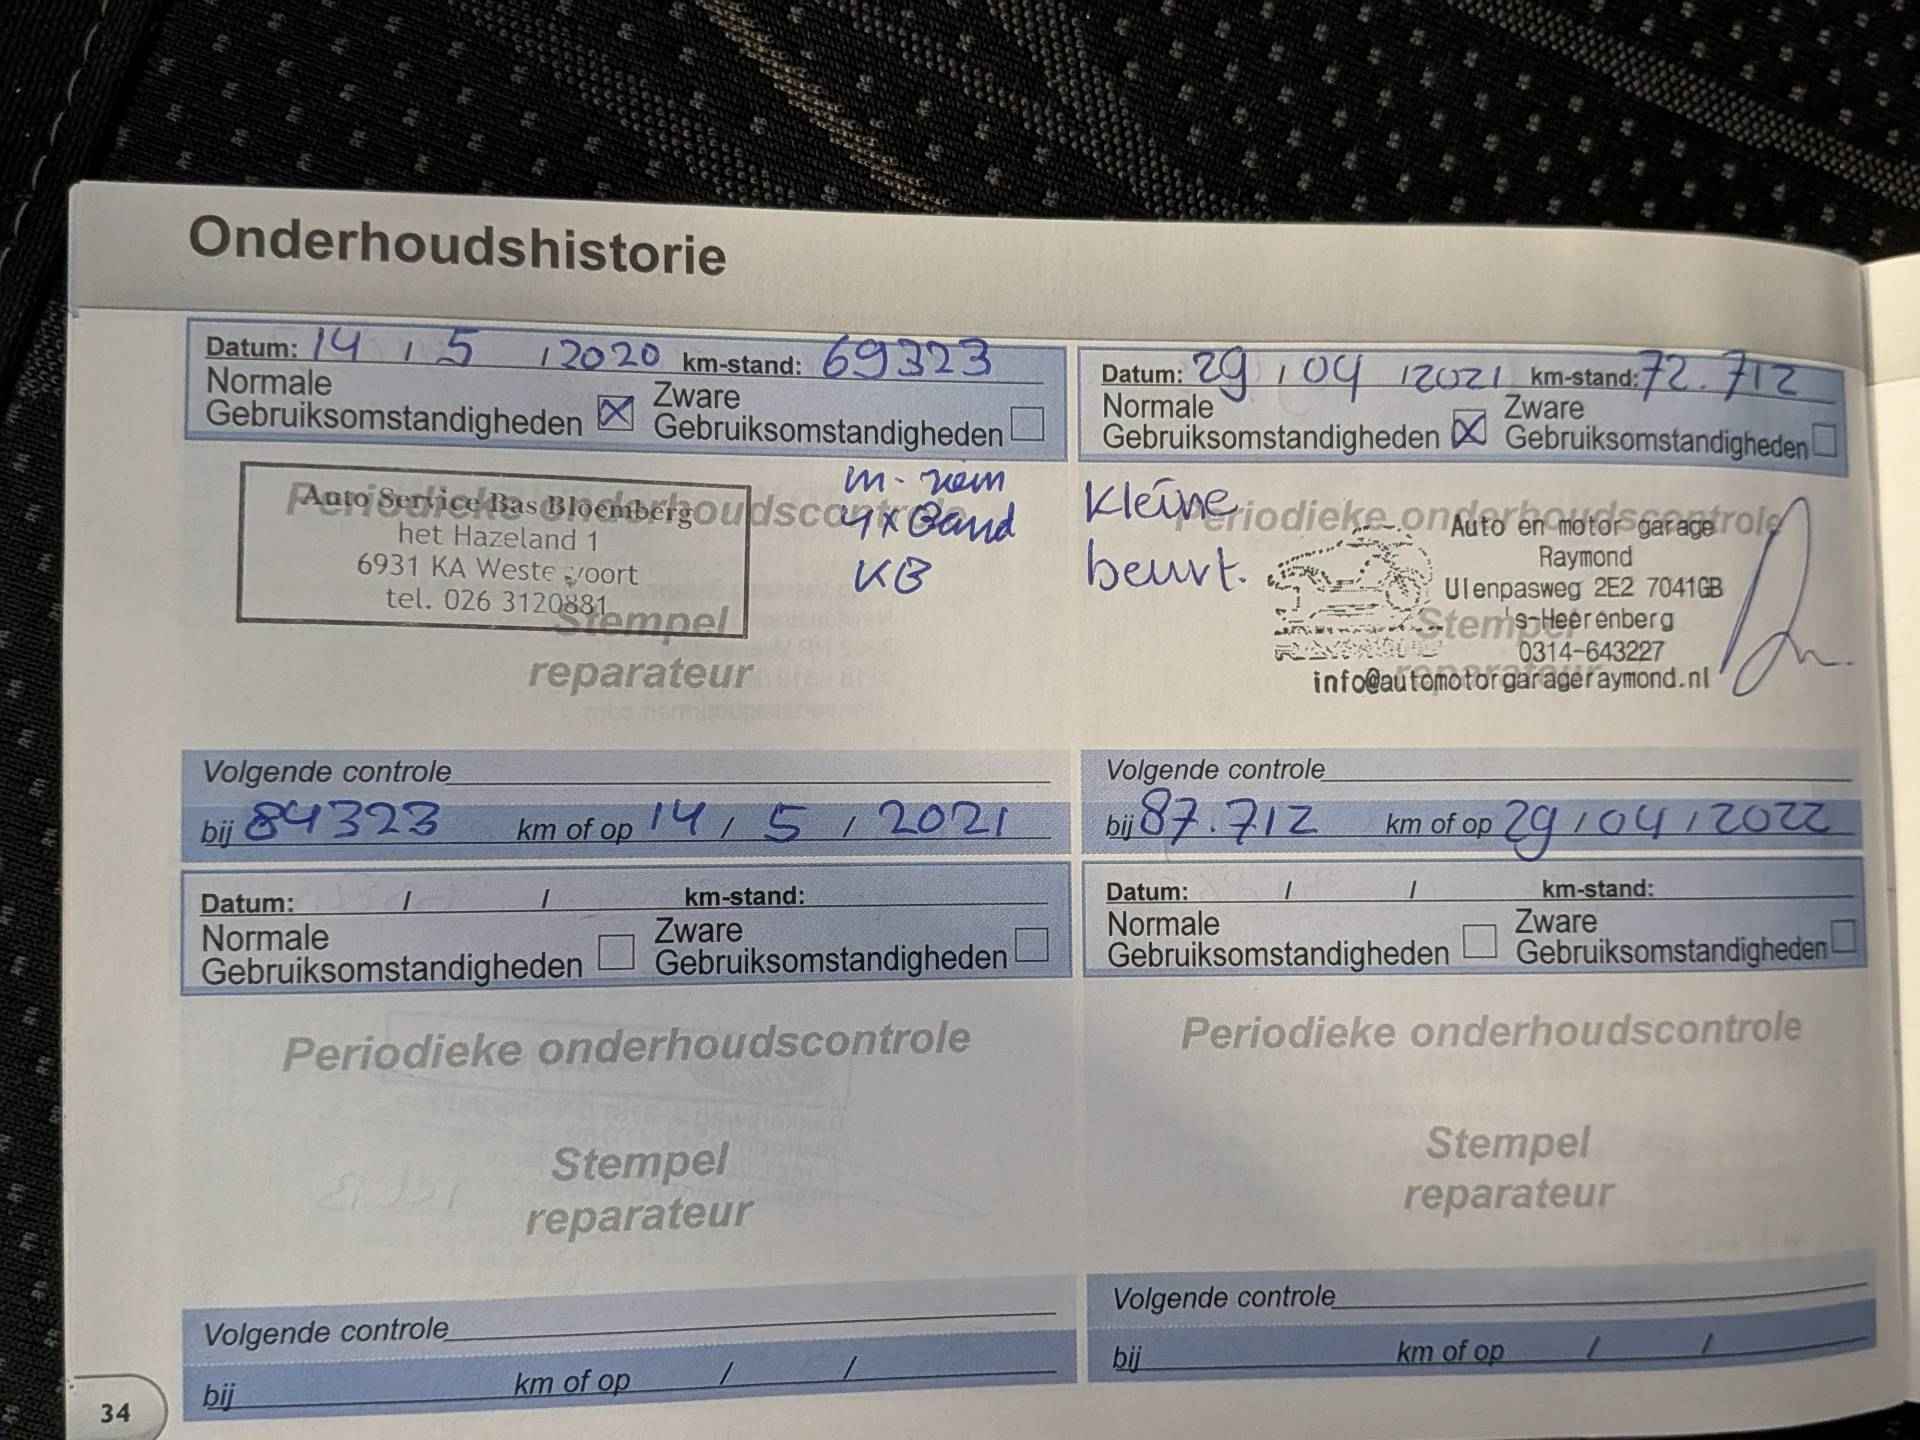 Onderhoudshistorie
Datum: 14 / 5 / 2020 km-stand: 69323
Normale Gebruiksomstandigheden ☒ Zware Gebruiksomstandigheden ☐
Periodieke onderhoudscontrole
Auto Service Bas Bloemberg
het Hazeland 1
6931 KA Westervoort
tel. 026 3120881
Stempel
reparateur
m-riem
4x Band
KB
Volgende controle
bij 84323 km of op 14 / 5 / 2021
Datum: 29 / 04 / 2021 km-stand: 72.712
Normale Gebruiksomstandigheden ☒ Zware Gebruiksomstandigheden ☐
Kleine
beurt.
Periodieke onderhoudscontrole
Auto en motor garage
Raymond
Ulenpasweg 2E2 7041GB
's-Heerenberg
0314-643227
info@automotorgarageraymond.nl
Stempel
reparateur
Volgende controle
bij 87.712 km of op 29 / 04 / 2022
Datum: / / km-stand:
Normale Gebruiksomstandigheden ☐ Zware Gebruiksomstandigheden ☐
Periodieke onderhoudscontrole
Stempel
reparateur
Volgende controle
bij km of op / /
Datum: / / km-stand:
Normale Gebruiksomstandigheden ☐ Zware Gebruiksomstandigheden ☐
Periodieke onderhoudscontrole
Stempel
reparateur
Volgende controle
bij km of op / /
34